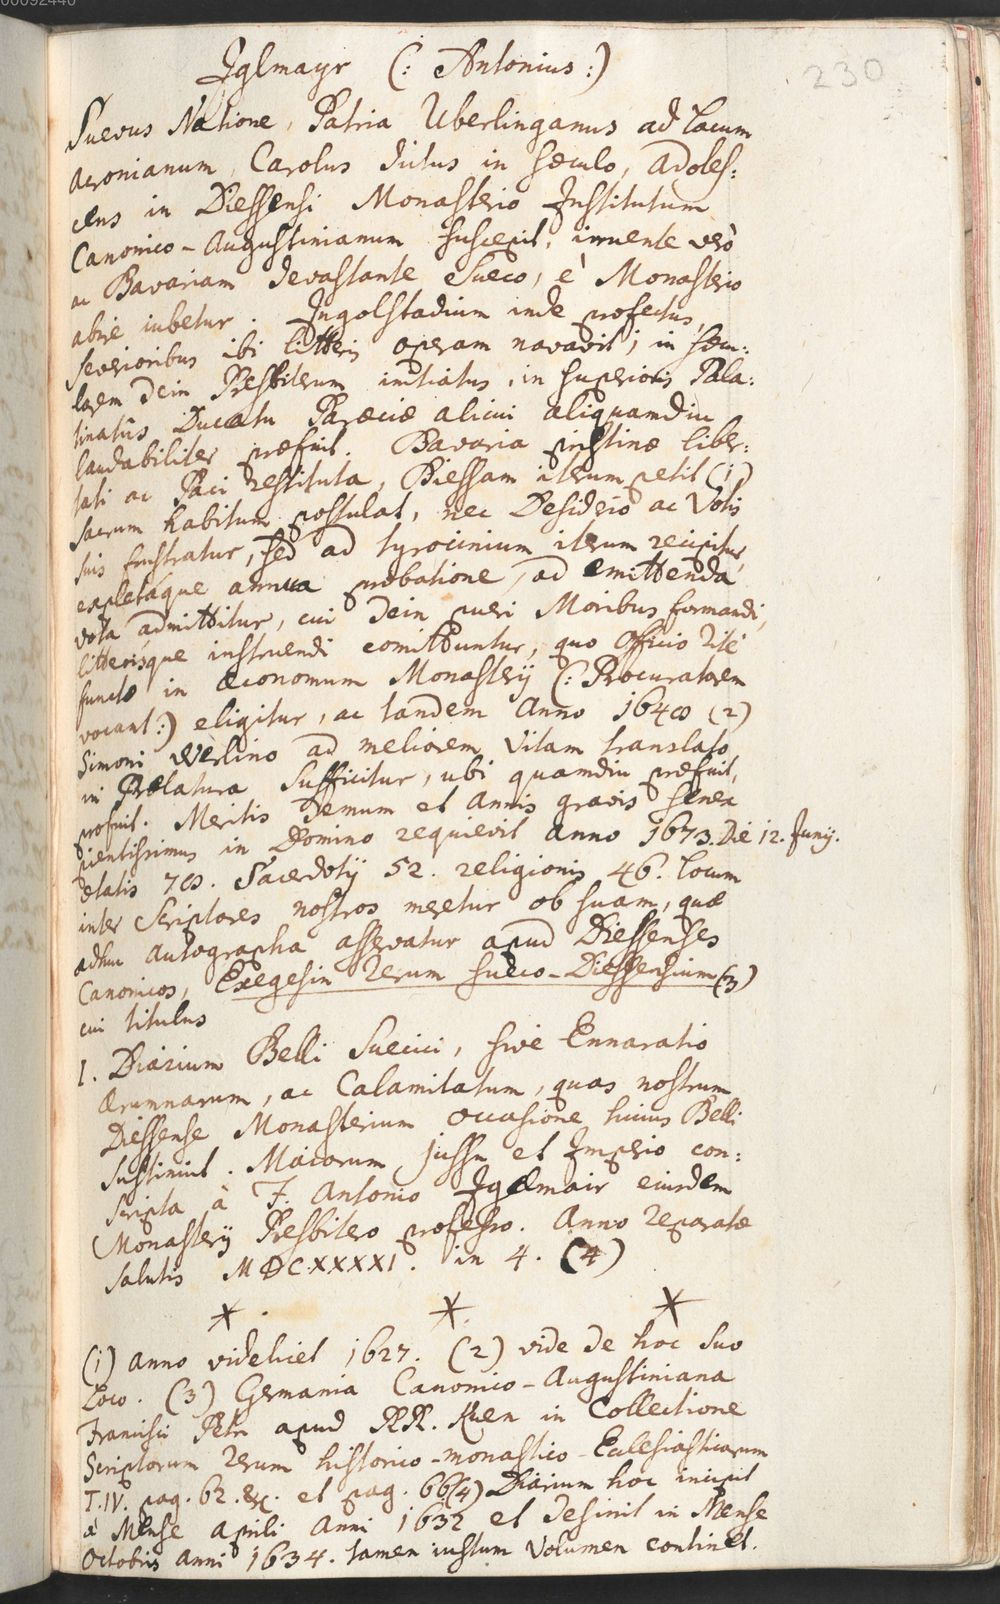 00092440
230
Iglmayr (: Antonius :)
Suevus Natione, Patria Uberlinganus ad Lacum
Acronianum, Carolus dictus in sæculo, adoles:
cens in Diessensi Monasterio Institutum
Canonico-Augustinianum suscepit, irruente verò
ac Bavariam devastante Sueco, è Monasterio
abire iubetur. Ingolstadium inde profectus,
severioribus ibi litteris operam navavit; in sæcu:
larem dein Presbiterum initiatus, in superioris Pala:
tinatûs Ducatu Paræciæ alicui aliquamdiu
laudabiliter præfuit. Bavaria pristinæ liber:
tati ac Paci restituta, Diessam iterum petit (1)
sacrum habitum postulat, nec Desiderio ac Votis
suis frustratur, sed ad tyrocinium iterum recipitur,
expletáque annua probatione, ad emittenda
vota admittitur, cui dein pueri Moribus formandi,
litterisque instruendi comittuntur, quo officio ritè
functo in œconomum Monasterij (: Procuratorem
vocant :) eligitur, ac tandem Anno 1648 (2)
Simoni Werlino ad meliorem Vitam translato
in Prælatura sufficitur, ubi quamdiu præfuit,
profuit. Meritis demum et Annis gravis senex
pientissimus in Domino requievit anno 1673. Die 12. Junij.
ætatis 78. Sacerdotij 52. religionis 46. Locum
inter Scriptores nostros meretur ob suam, quæ
adhuc autographa asservatur apud Diessenses
Canonicos, Exegesin rerum Sueco-Diessensium (3)
cui titulus
1. Diarium Belli Suecici, sive Ennaratio
Ærumnarum, ac Calamitatum, quas nostrum
Diessense Monasterium occasione huius Belli
sustinuit. Maiorum jussu et Imperio con:
scripta à F. Antonio Igelmair eiusdem
Monasterij Presbitero professo. Anno reparatæ
salutis MDCXXXXI. in 4. (4)
* * *
(1) anno videlicet 1627. (2) vide de hoc suo
Loco. (3) Germania Canonico-Augustiniana
Francisci Petri apud RR. Kuen in Collectione
Scriptorum rerum historico-monastico-Ecclesiasticarum
T. IV. pag. 62. &c. et pag. 66 (4) Diarium hoc incipit
à Mense aprili Anni 1632 et desinit in Mense
Octobris anni 1634. tamen iustum Volumen continet.